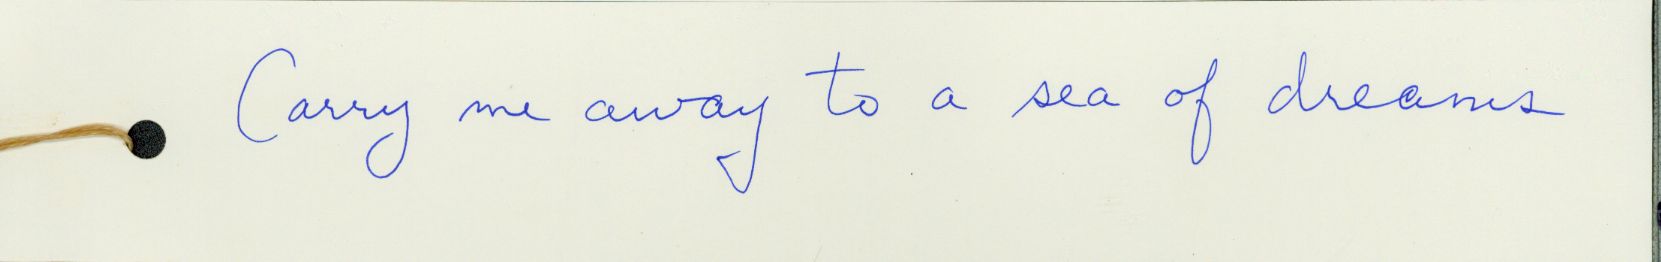 Carry me away to a sea of dreams